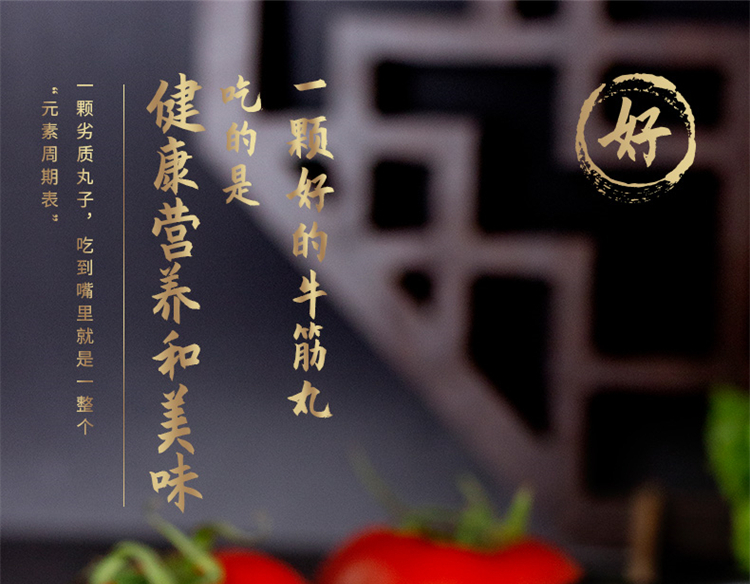 好
一颗好的牛筋丸
吃的是
健康营养和美味
一颗劣质丸子，吃到嘴里就是一整个
“元素周期表”